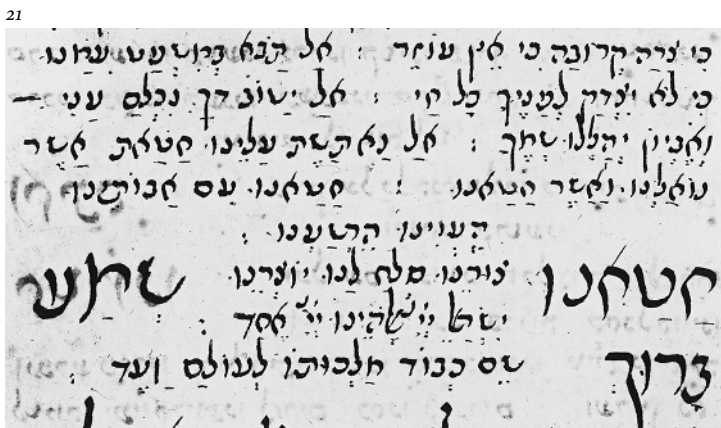 21
כי צרה קרובה כי אין עוזר : אל תבא במשפט עמנו
כי לא יצדק לפניך כל חי : אל ישוב דך נכלם עני
ואביון יהללו שמך : אל נא תשת עלינו חטאת אשר
נואלנו ואשר חטאנו : חטאנו עם אבותינו
העוינו הרשענו :
חטאנו צורנו סלח לנו יוצרנו שמע
ישראל ייי אלהינו ייי אחד :
ברוך שם כבוד מלכותו לעולם ועד :